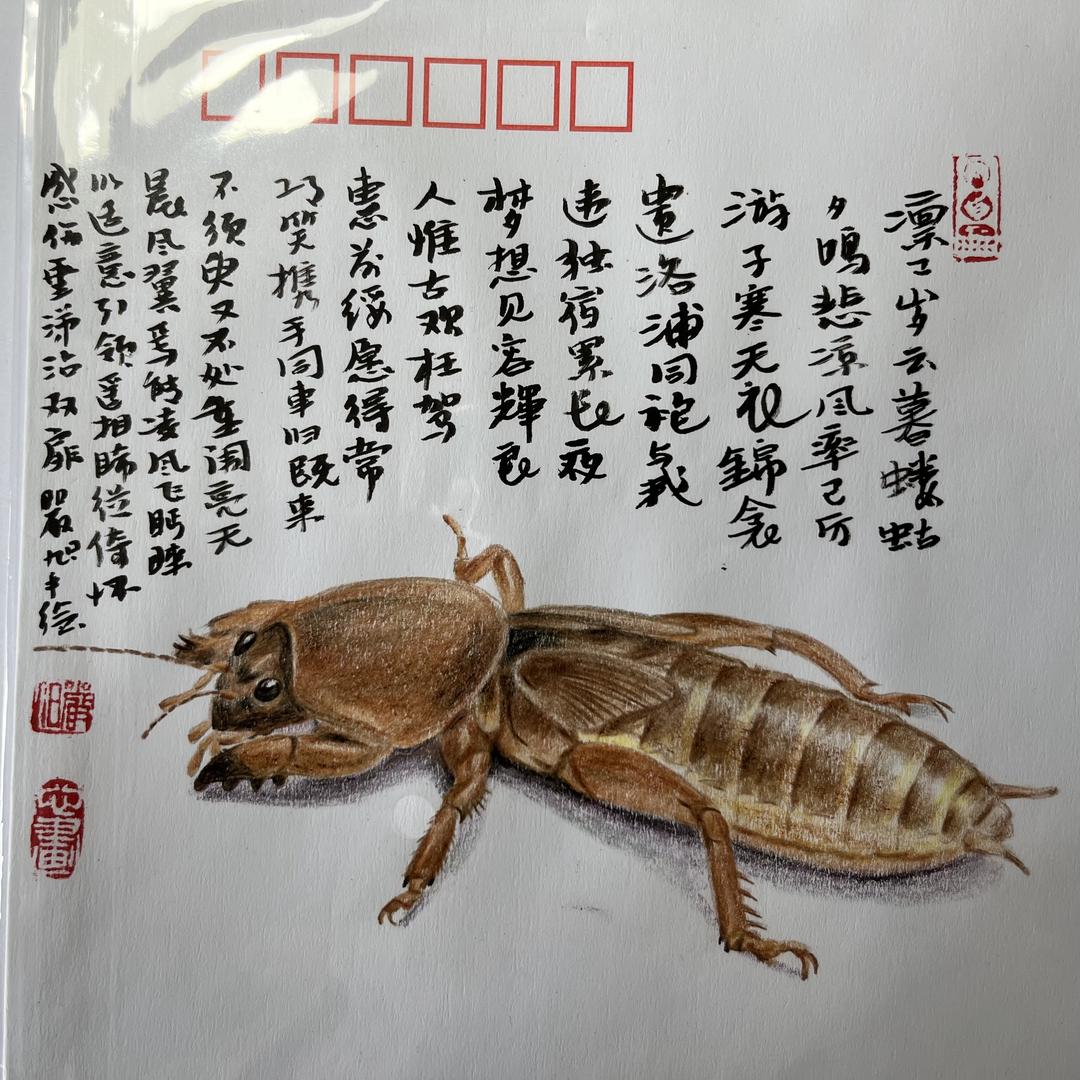 凛〻岁云暮蝼蛄
夕鸣悲凉风率已厉
游子寒无衣锦衾
遗洛浦同袍与我
违独宿累长夜
梦想见容輝良
人惟古欢枉驾
惠前绥愿得常
巧笑携手同车归既来
不须臾又不处重闱亮无
晨风翼焉能凌风飞眄睐
以适意引领遥相睎徙倚怀
感伤垂涕沾双扉 嚴旭手绘